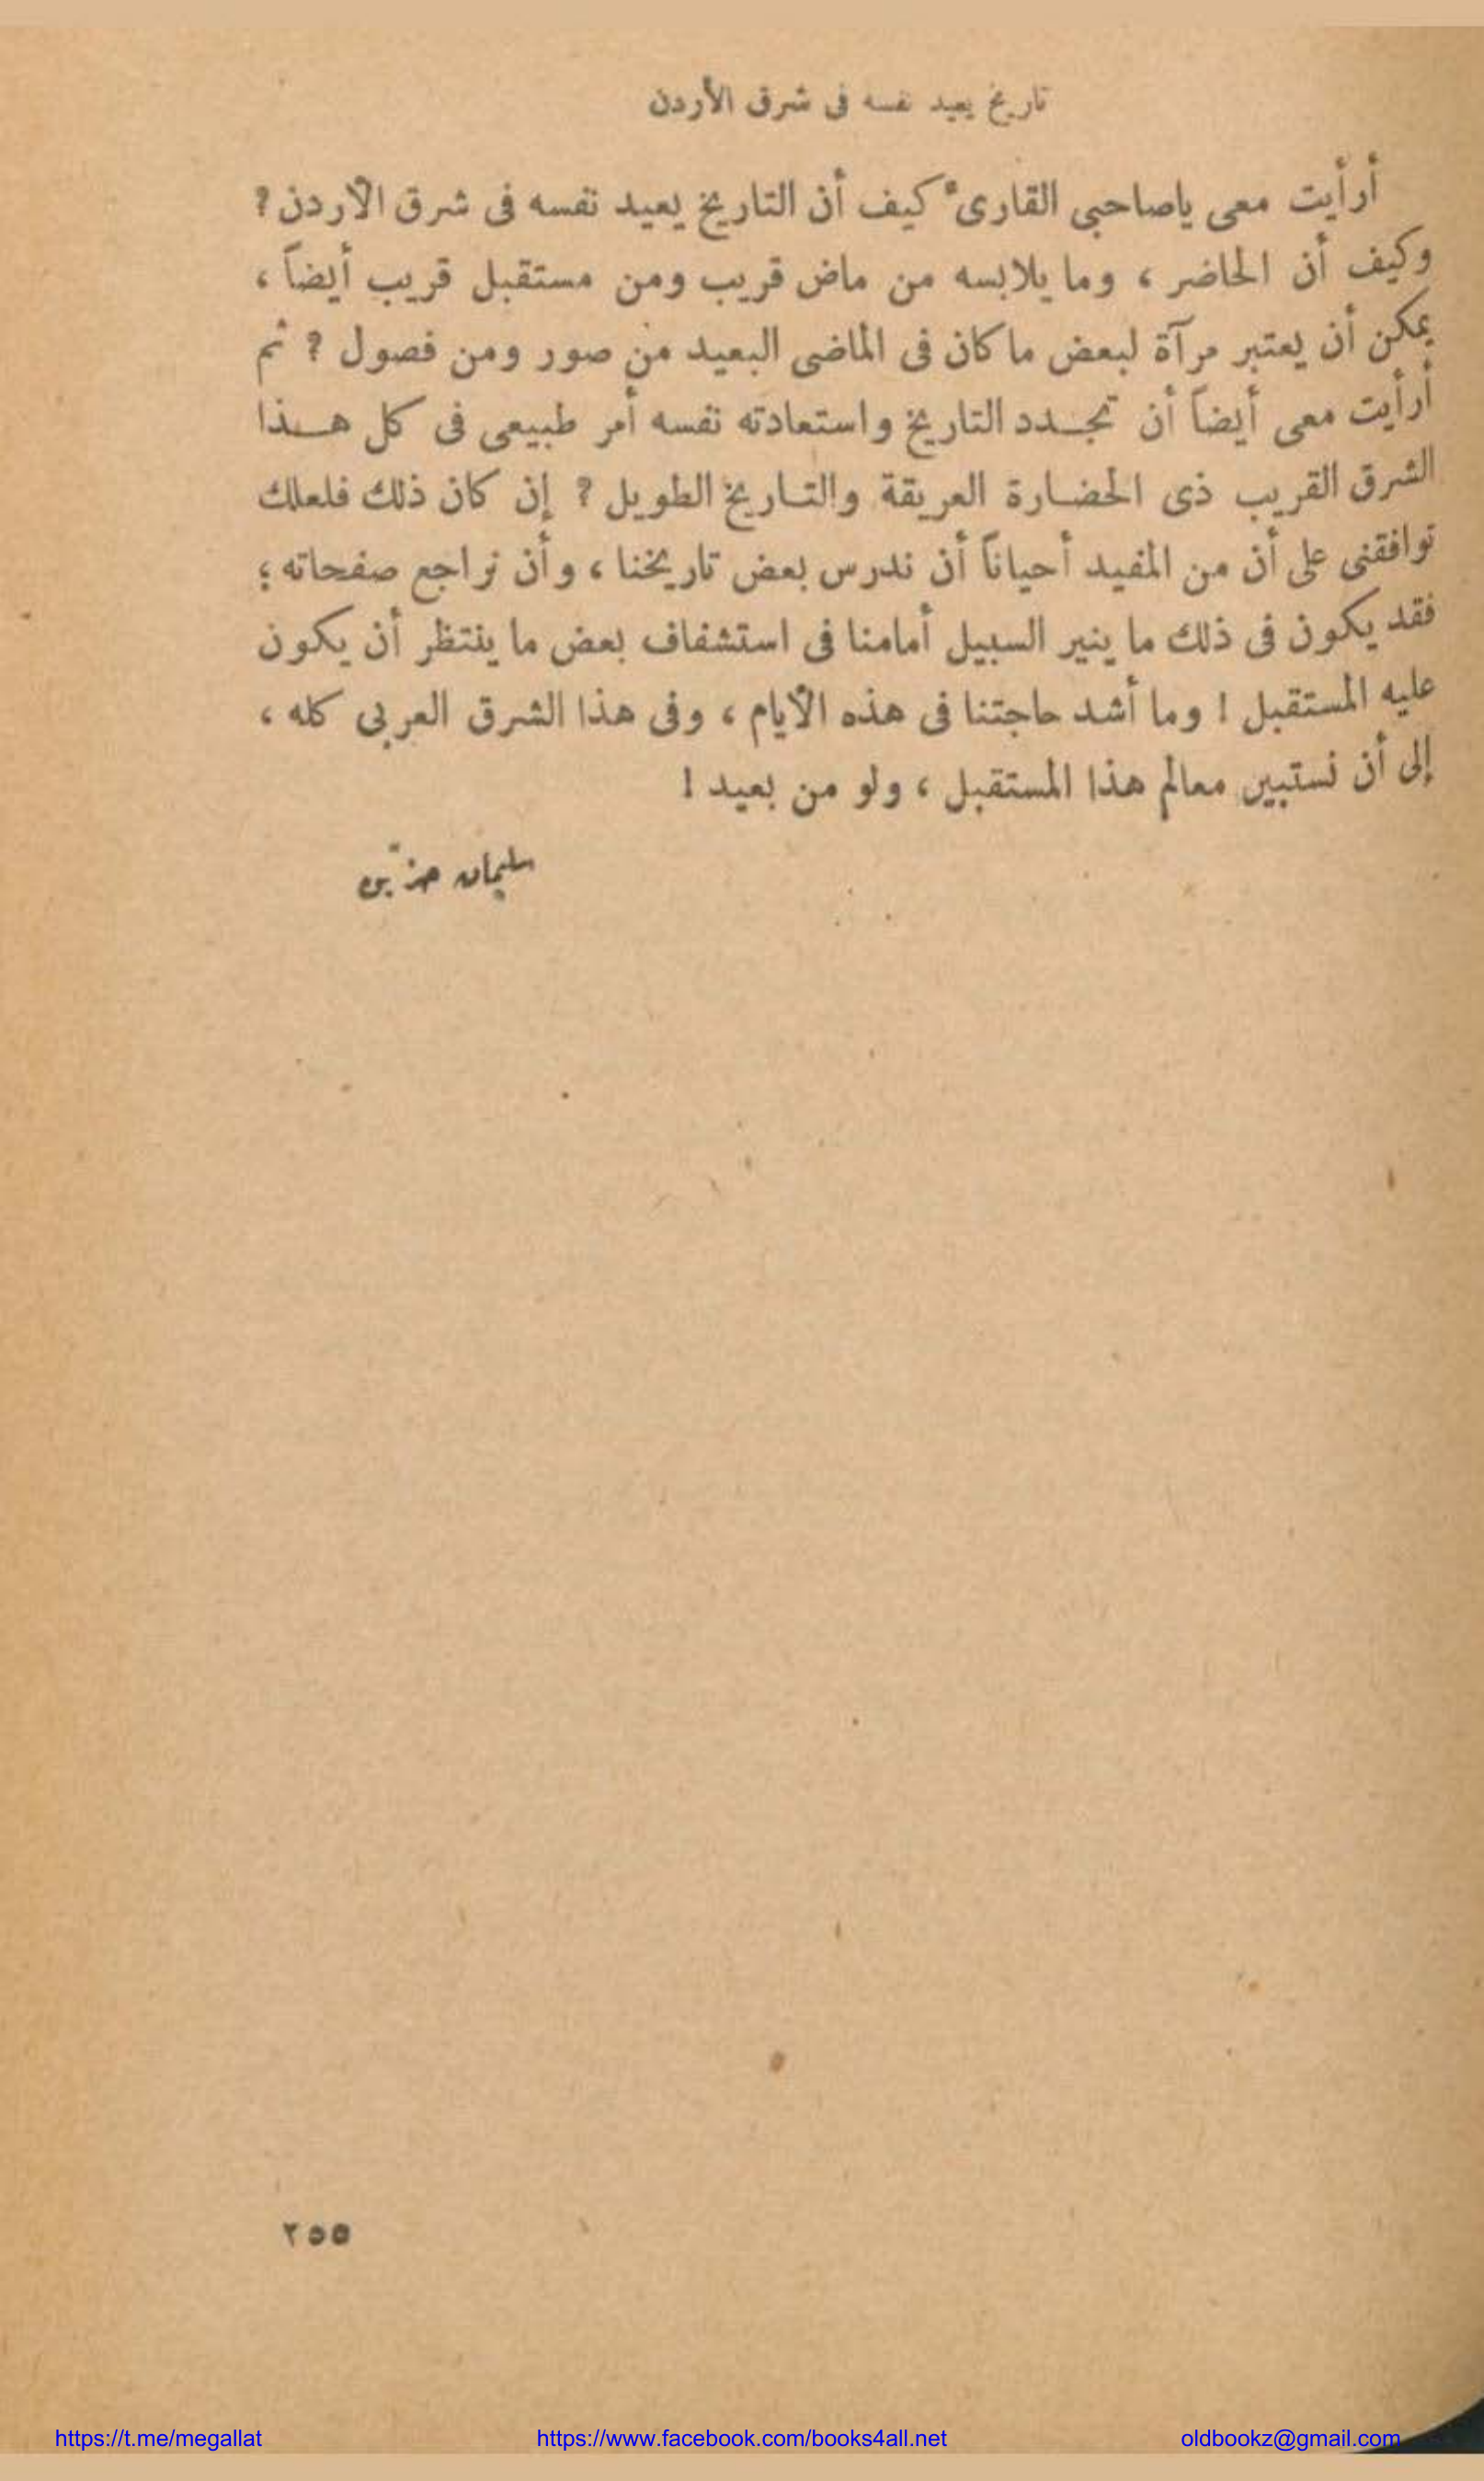 تاريخ يعيد نفسه فى شرق الأردن
أرأيت معى ياصاحبى القارىء كيف أن التاريخ يعيد نفسه فى شرق الأردن ؟
وكيف أن الحاضر ، وما يلابسه من ماض قريب ومن مستقبل قريب أيضاً ،
يمكن أن يعتبر مرآة لبعض ما كان فى الماضى البعيد من صور ومن فصول ؟ ثم
أرأيت معى أيضاً أن تجـدد التاريخ واستعادته نفسه أمر طبيعى فى كل هـذا
الشرق القريب ذى الحضـارة العريقة والتـاريخ الطويل ؟ إن كان ذلك فلعلك
توافقنى على أن من المفيد أحياناً أن ندرس بعض تاريخنا ، وأن نراجع صفحاته ؛
فقد يكون فى ذلك ما ينير السبيل أمامنا فى استشفاف بعض ما ينتظر أن يكون
عليه المستقبل ! وما أشد حاجتنا فى هذه الأيام ، وفى هذا الشرق العربى كله ،
إلى أن نستبين معالم هذا المستقبل ، ولو من بعيد !
سليمان حزيّن
٢٥٥
https://t.me/megallat https://www.facebook.com/books4all.net oldbookz@gmail.com